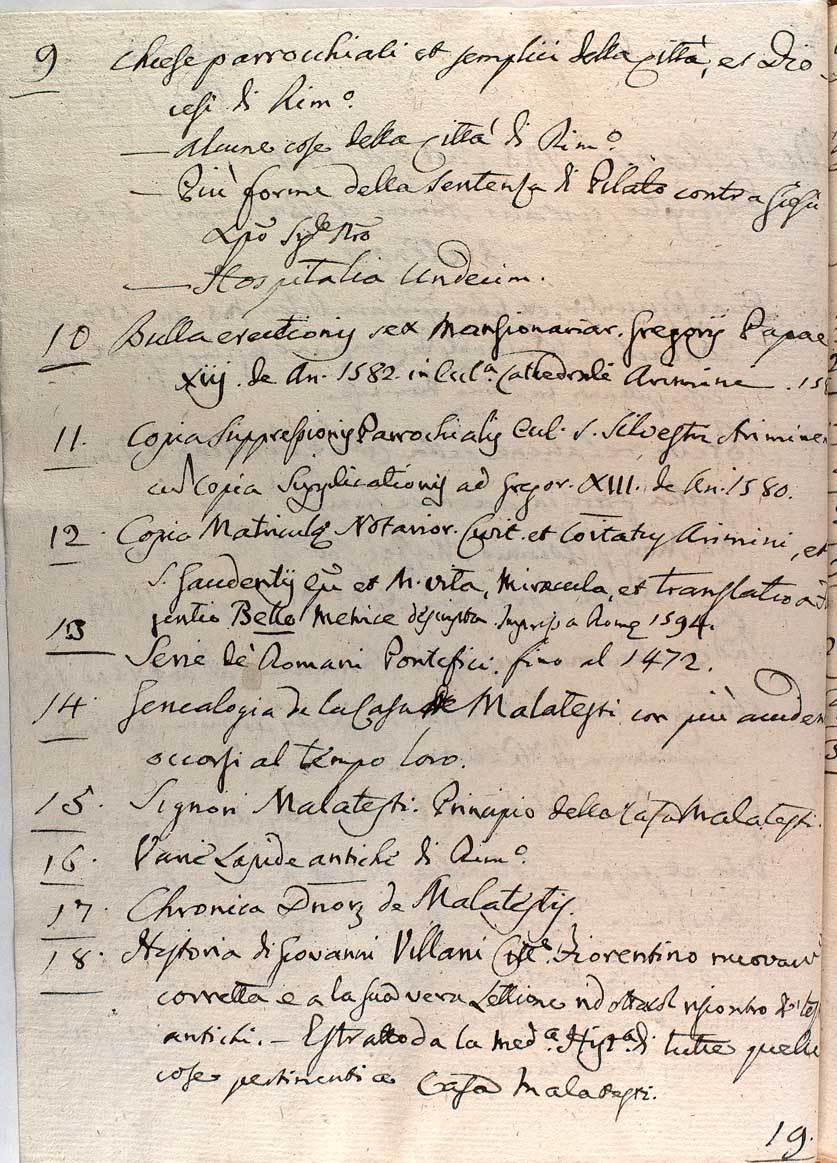 9 Chiese parrocchiali et semplici della Città, et Dio
cesi di Rim.o
— Alcune cose della Città di Rim.o
— Più forme della sentenza di Pilato contra Giesù
Xpo Sig.re Nro
— Hospitalia undecim.
10 Bulla erectionis sex Mansionariar. Gregorij Papae
XIIJ. de An. 1582. in Eccl.a Cathedrali Arimine .15
11. Copia Suppressionis Parrochialis Eccl. S. Silvestri Arimine
cu Copia Supplicationis ad Gregor. XIII. de An. 1580.
12. Copia Matriculę Notarior. Civit. et Coitatus Arimini, et
S. Gaudentij Epi et M. vita, miracula, et translatio a
gentio Betto Metrice descripta Impress a Romę 1594.
13 Serie de Romani Pontefici. fino al 1472.
14. Genealogia de la Casa de Malatesti con più acciden
occorsi al tempo loro.
15. Signori Malatesti. Principio della Casa Malatesti.
16. Varie Lapide antiche di Rim.o
17. Chronica Dnorꝫ de Malatestis.
18. Historia di Giovanni Villani Citt.o Fiorentino nuovam
corretta e a la sua vera Lettione ridotta col riscontro de tes
antichi. — Estratto da la med.a Hist.a di tutte quelle
cose pertinenti a Casa Malatesti.
19.